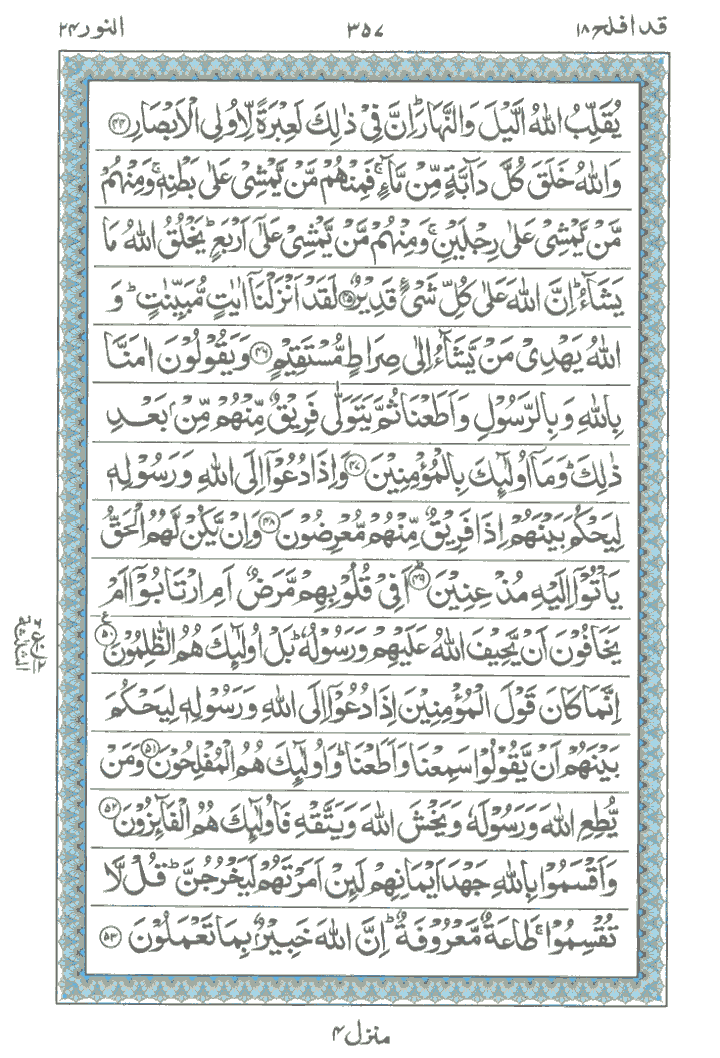 قد افلح ۱۸
۳۵۷
النور ۲۴
يُقَلِّبُ اللّٰهُ الَّيْلَ وَالنَّهَارَ ؕ اِنَّ فِيْ ذٰلِكَ لَعِبْرَةً لِّاُولِى الْاَبْصَارِ ۴۴
وَاللّٰهُ خَلَقَ كُلَّ دَآبَّةٍ مِّنْ مَّآءٍ ۚ فَمِنْهُمْ مَّنْ يَّمْشِيْ عَلٰى بَطْنِهٖ ۚ وَمِنْهُمْ
مَّنْ يَّمْشِيْ عَلٰى رِجْلَيْنِ ۚ وَمِنْهُمْ مَّنْ يَّمْشِيْ عَلٰٓى اَرْبَعٍ ؕ يَخْلُقُ اللّٰهُ مَا
يَشَآءُ ؕ اِنَّ اللّٰهَ عَلٰى كُلِّ شَيْءٍ قَدِيْرٌ ۴۵ لَقَدْ اَنْزَلْنَآ اٰيٰتٍ مُّبَيِّنٰتٍ ؕ وَ
اللّٰهُ يَهْدِيْ مَنْ يَّشَآءُ اِلٰى صِرَاطٍ مُّسْتَقِيْمٍ ۴۶ وَيَقُوْلُوْنَ اٰمَنَّا
بِاللّٰهِ وَبِالرَّسُوْلِ وَاَطَعْنَا ثُمَّ يَتَوَلّٰى فَرِيْقٌ مِّنْهُمْ مِّنْۢ بَعْدِ
ذٰلِكَ ؕ وَمَآ اُولٰٓئِكَ بِالْمُؤْمِنِيْنَ ۴۷ وَاِذَا دُعُوْٓا اِلَى اللّٰهِ وَرَسُوْلِهٖ
لِيَحْكُمَ بَيْنَهُمْ اِذَا فَرِيْقٌ مِّنْهُمْ مُّعْرِضُوْنَ ۴۸ وَاِنْ يَّكُنْ لَّهُمُ الْحَقُّ
يَاْتُوْٓا اِلَيْهِ مُذْعِنِيْنَ ؕ ۴۹ اَفِيْ قُلُوْبِهِمْ مَّرَضٌ اَمِ ارْتَابُوْٓا اَمْ
يَخَافُوْنَ اَنْ يَّحِيْفَ اللّٰهُ عَلَيْهِمْ وَرَسُوْلُهٗ ؕ بَلْ اُولٰٓئِكَ هُمُ الظّٰلِمُوْنَ ۵۰
اِنَّمَا كَانَ قَوْلَ الْمُؤْمِنِيْنَ اِذَا دُعُوْٓا اِلَى اللّٰهِ وَرَسُوْلِهٖ لِيَحْكُمَ
بَيْنَهُمْ اَنْ يَّقُوْلُوْا سَمِعْنَا وَاَطَعْنَا ؕ وَاُولٰٓئِكَ هُمُ الْمُفْلِحُوْنَ ۵۱ وَمَنْ
يُّطِعِ اللّٰهَ وَرَسُوْلَهٗ وَيَخْشَ اللّٰهَ وَيَتَّقْهِ فَاُولٰٓئِكَ هُمُ الْفَآئِزُوْنَ ۵۲
وَاَقْسَمُوْا بِاللّٰهِ جَهْدَ اَيْمَانِهِمْ لَئِنْ اَمَرْتَهُمْ لَيَخْرُجُنَّ ؕ قُلْ لَّا
تُقْسِمُوْا ۚ طَاعَةٌ مَّعْرُوْفَةٌ ؕ اِنَّ اللّٰهَ خَبِيْرٌۢ بِمَا تَعْمَلُوْنَ ۵۳
منزل ۴